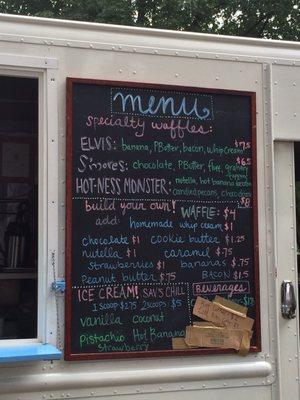 menu
specialty waffles:
ELVIS: banana, PButter, bacon, whip cream $7.5
S'mores: chocolate, PButter, $6.5
HOT-NESS MONSTER: nutella, hot banana
candied pecans, chocolate $8
build your own! WAFFLE: $4
add: homemade whip cream $1
chocolate $1 cookie butter $1.25
nutella $1 caramel $.75
strawberries $1 bananas $.75
Peanut butter $.75 BACON $1.5
ICE CREAM! beverages
1 scoop $2.75 2 scoops $5
vanilla coconut
Pistachio Hot Banana
Strawberry